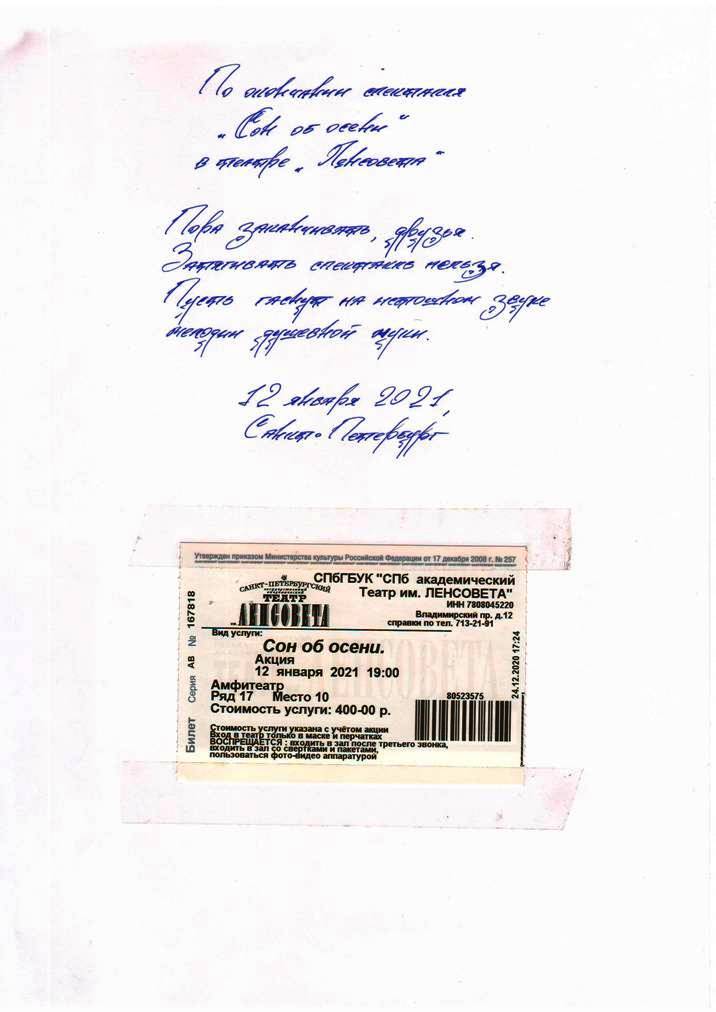 По окончании спектакля
„Сон об осени“
в театре „Ленсовета“
Пора заканчивать, друзья.
Затягивать спектакль нельзя.
Пусть гаснут на истошном звуке
мелодии душевной муки.
12 января 2021,
Санкт-Петербург
Утвержден приказом Министерства культуры Российской Федерации от 17 декабря 2008 г. № 257
САНКТ-ПЕТЕРБУРГСКИЙ
ТЕАТР
ЛЕНСОВЕТА
СПбГБУК "СПб академический
Театр им. ЛЕНСОВЕТА"
ИНН 7808045220
Владимирский пр. д.12
справки по тел. 713-21-91
Вид услуги:
Сон об осени.
Акция
12 января 2021 19:00
Амфитеатр
Ряд 17 Место 10
Стоимость услуги: 400-00 р.
80523575
Стоимость услуги указана с учётом акции
Вход в театр только в маске и перчатках
ВОСПРЕЩАЕТСЯ : входить в зал после третьего звонка,
входить в зал со свертками и пакетами,
пользоваться фото-видео аппаратурой
Билет Серия АВ № 167818
24.12.2020 17:24